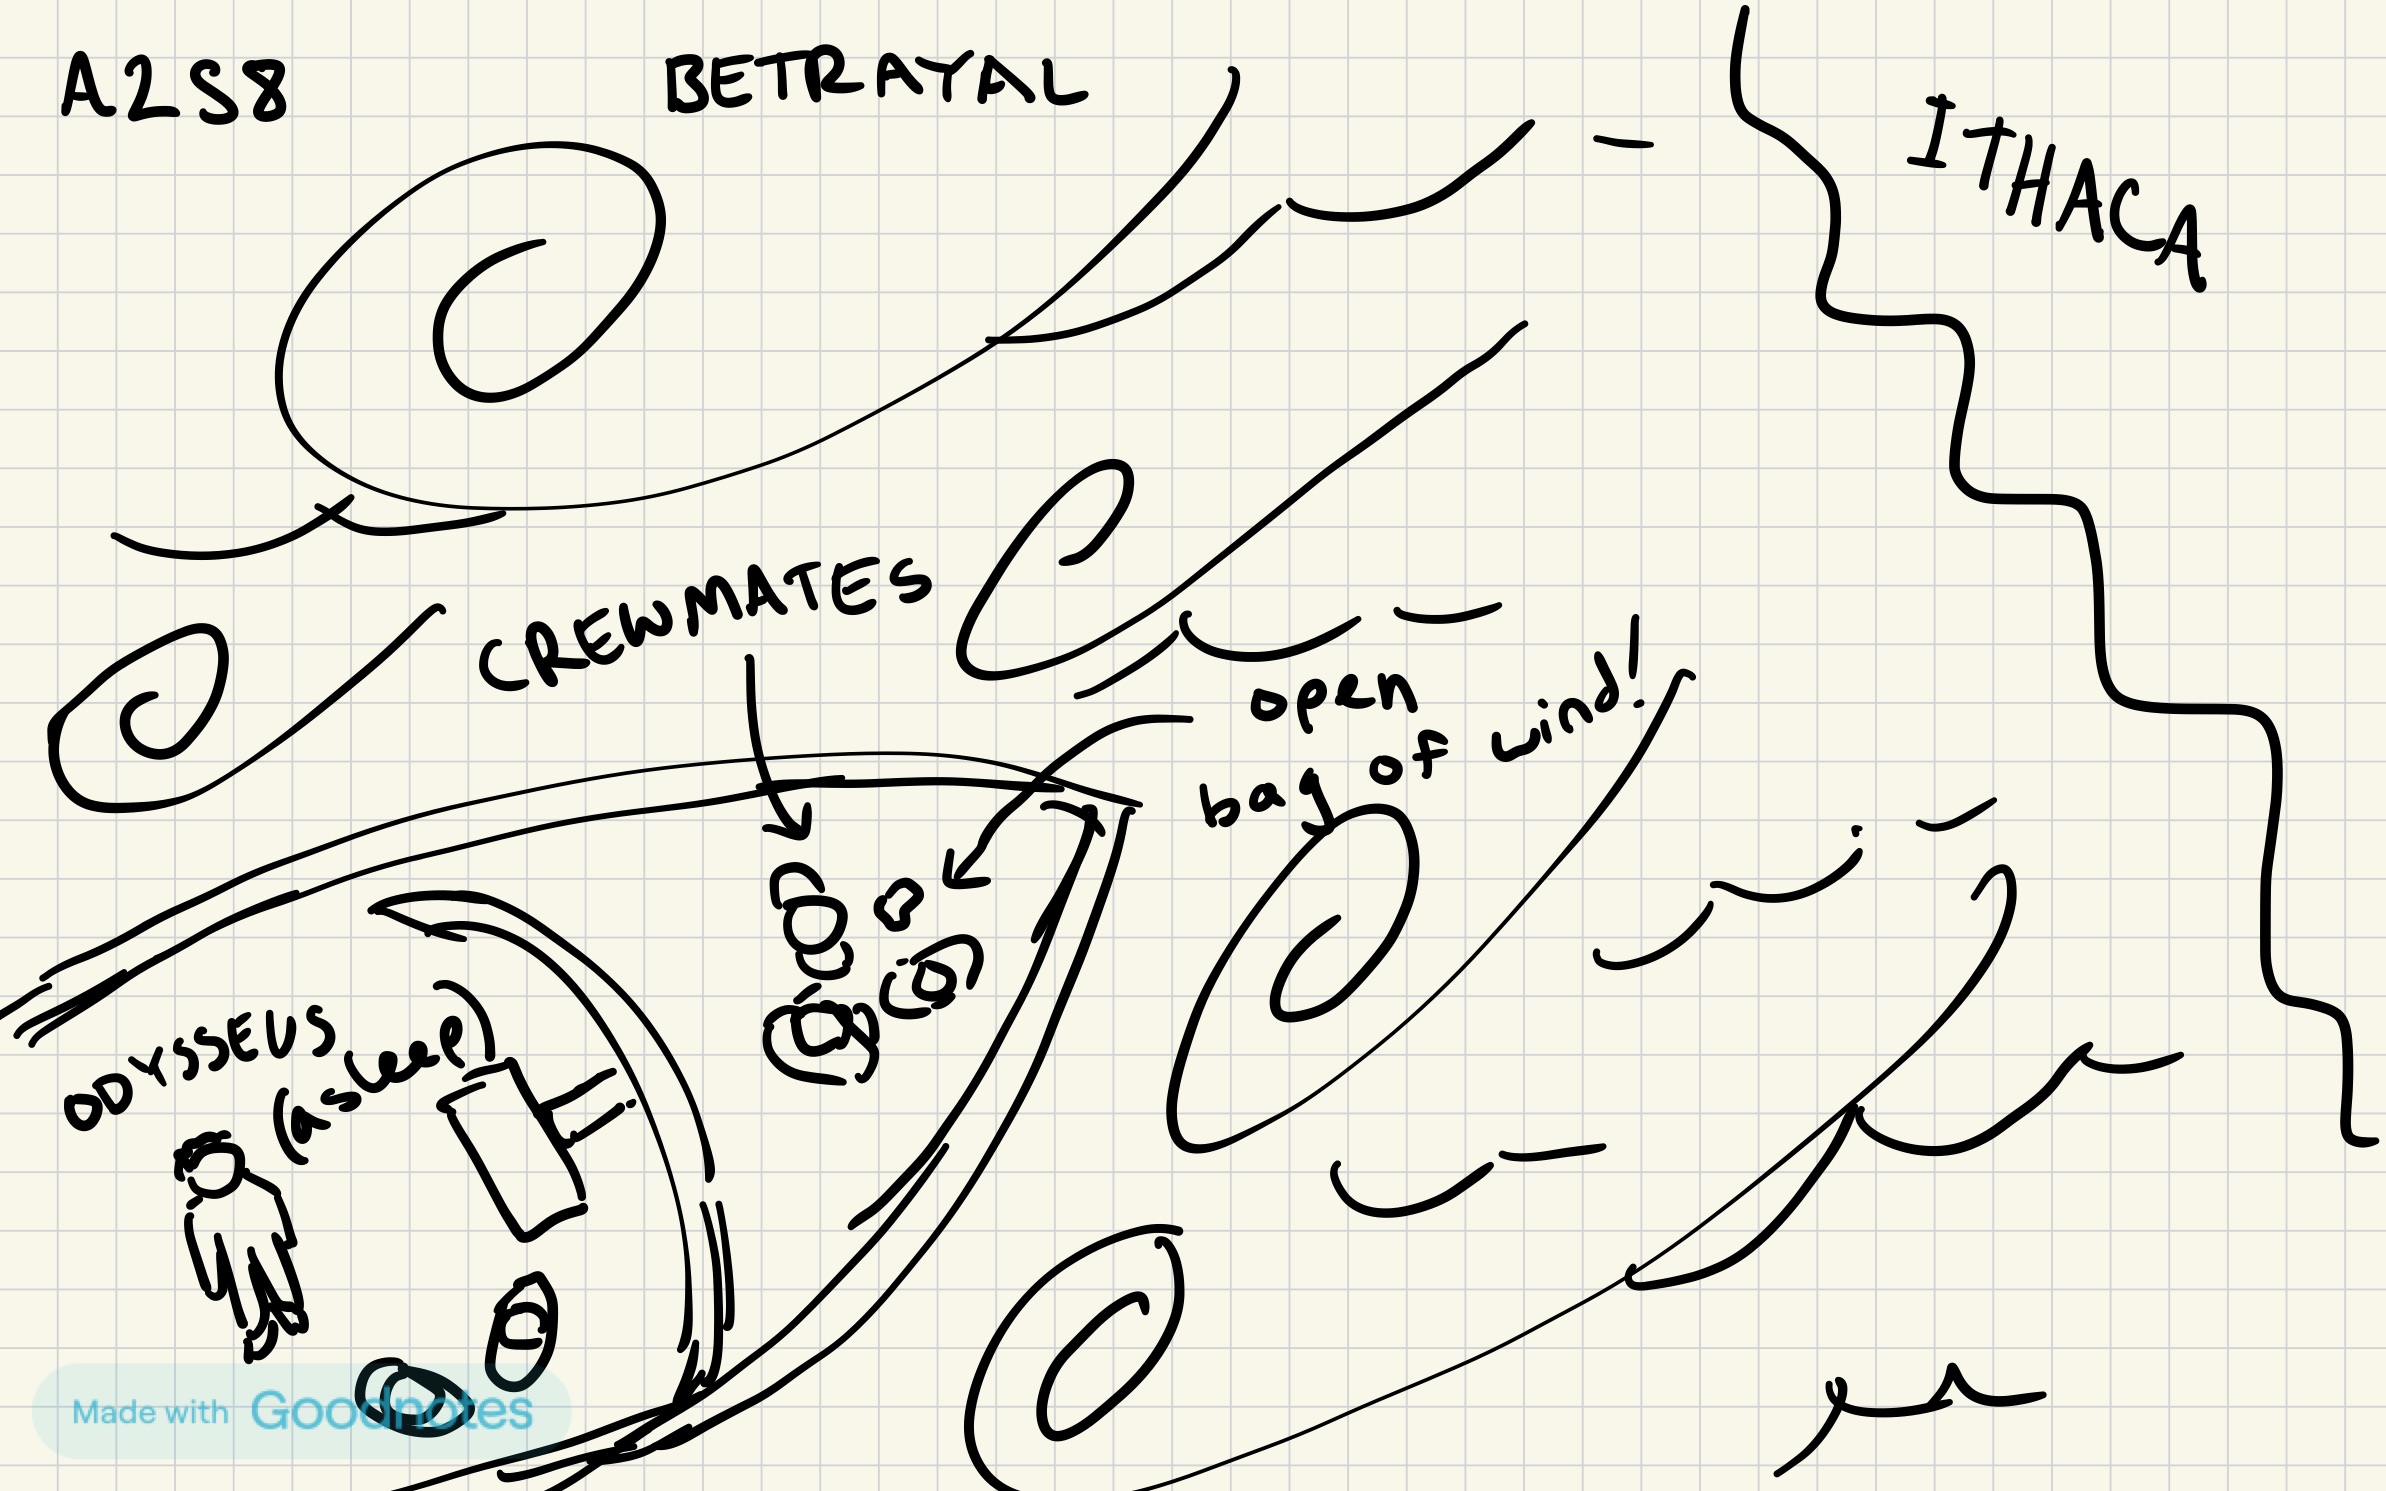 A2S8
BETRAYAL
ITHACA
CREWMATES
open
bag of wind!
ODYSSEUS
(Asleep)
Made with Goodnotes